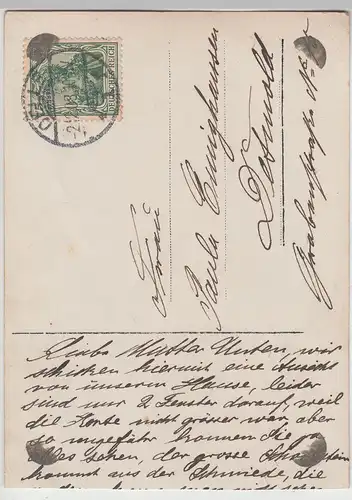 DEUTSCHES REICH
Frau
Paula Ewighausen
Detmold
Grabenstraße
Liebe Mutter Unten, wir
schicken hiermit eine Ansicht
von unserem Hause, leider
sind nur 2 Fenster darauf, weil
die Karte nicht grösser war, aber
so ungefähr können Sie ja
alles sehen, der grosse
kommt aus der Schmiede, die